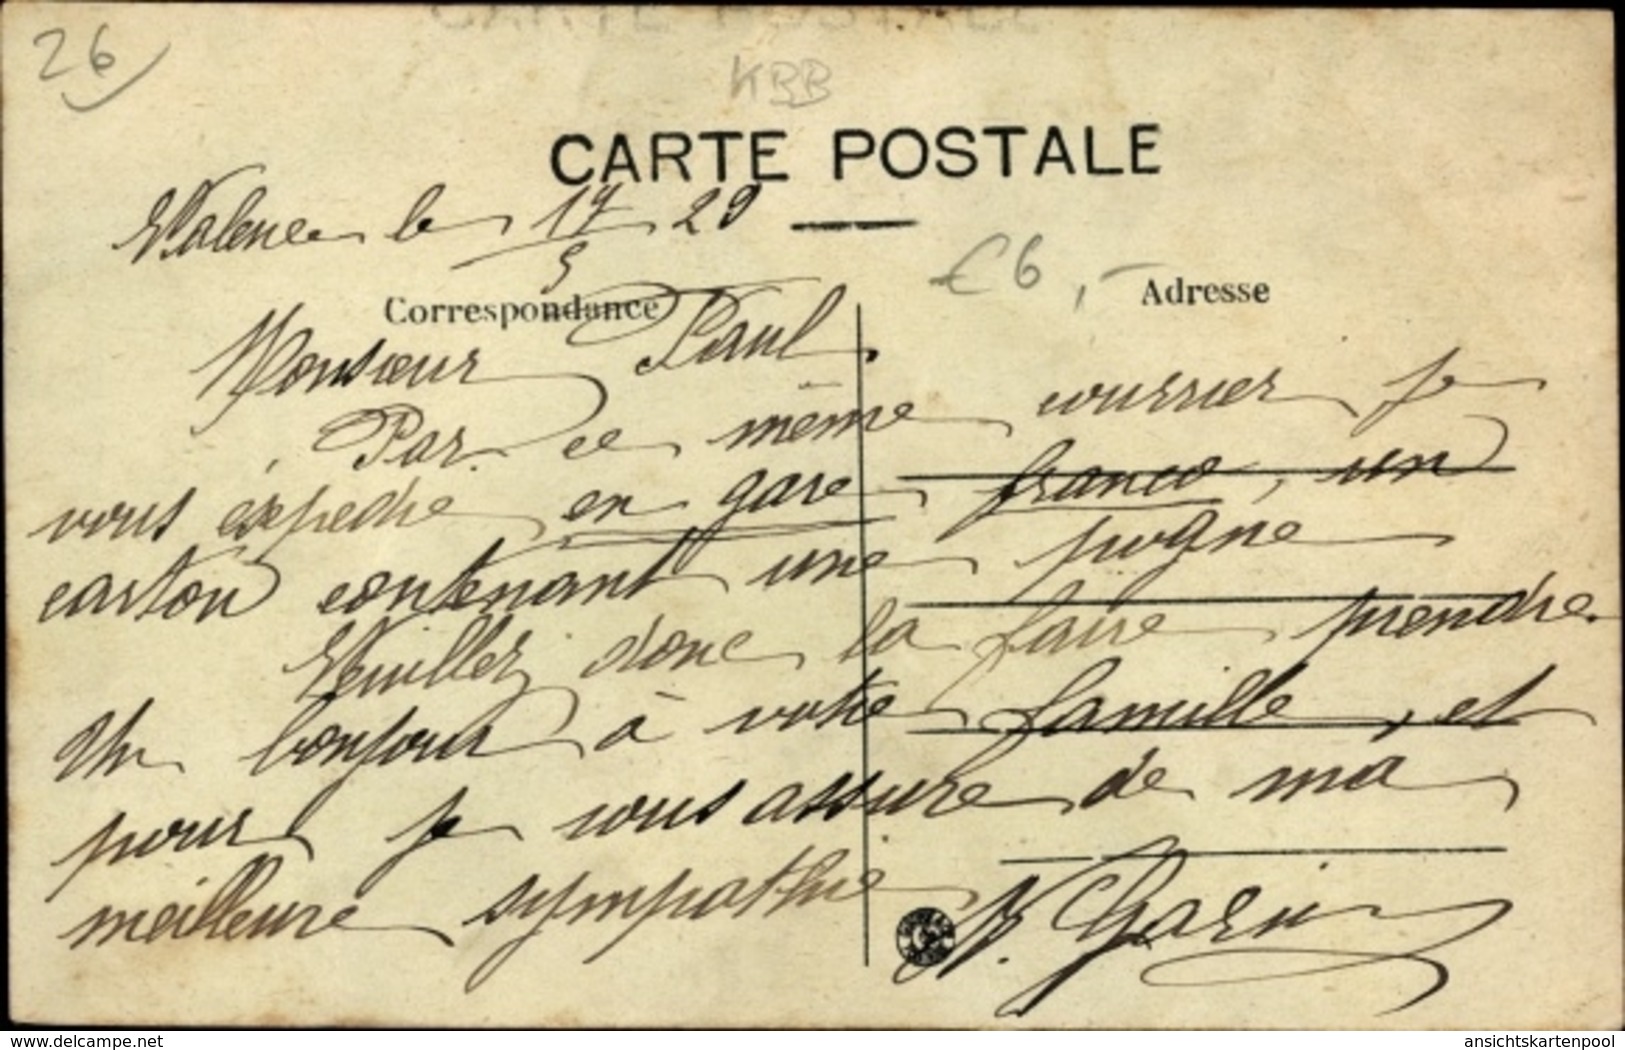 26
KBB
CARTE POSTALE
Valence le 17/5 29
€6,-
Correspondance
Adresse
Monsieur Paul
Par ce même courrier je
vous éxpedie en gare franco, un
carton contenant une pogne
Veuillez donc la faire prendre
Un bonjour à votre famille, et
pour je vous assure de ma
meilleure sympathie
delcampe.net
ansichtskartenpool